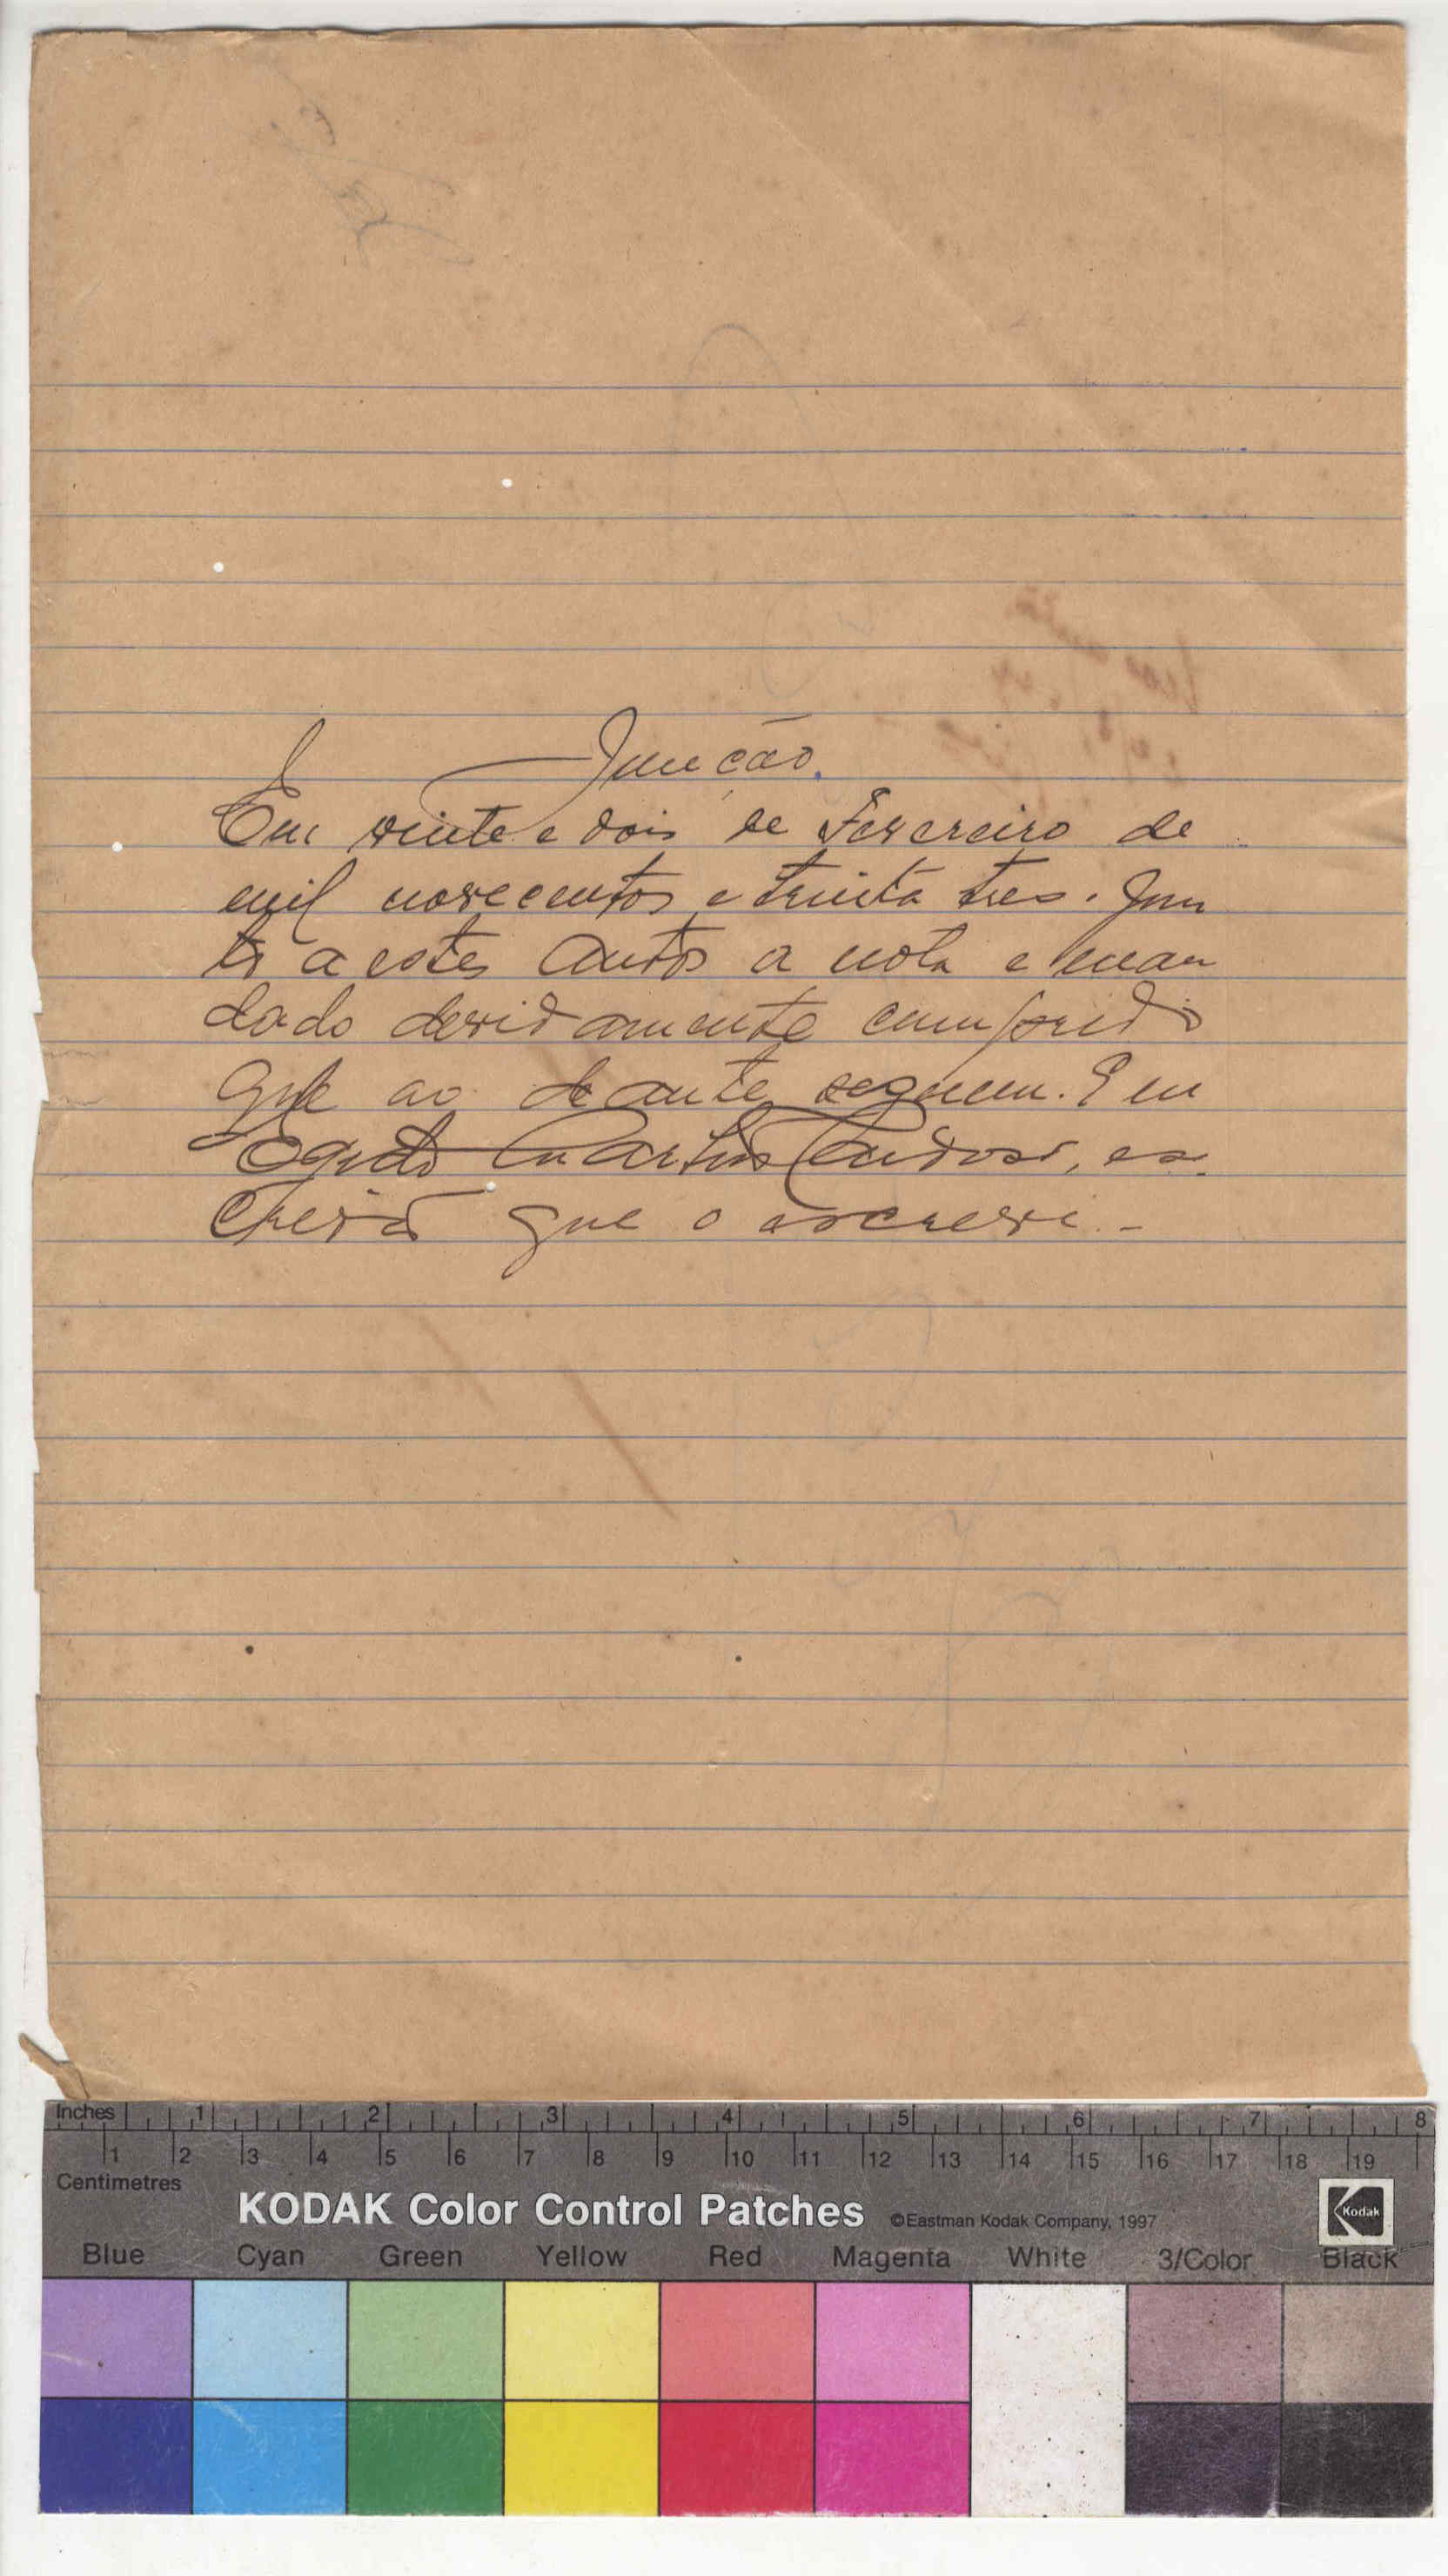 Juncão.
Em vinte e dois de Fevereiro de
mil novecentos e trinta tres. Jun
to a estes autos a nota e man
dado devidamente cumprido
que ao deante seguem. Eu
Egidio Martins Cardoso, es.
crivão que o escrevi. -
Inches 1 2 3 4 5 6 7 8
1 2 3 4 5 6 7 8 9 10 11 12 13 14 15 16 17 18 19
Centimetres
KODAK Color Control Patches ©Eastman Kodak Company, 1997 Kodak
Blue Cyan Green Yellow Red Magenta White 3/Color Black